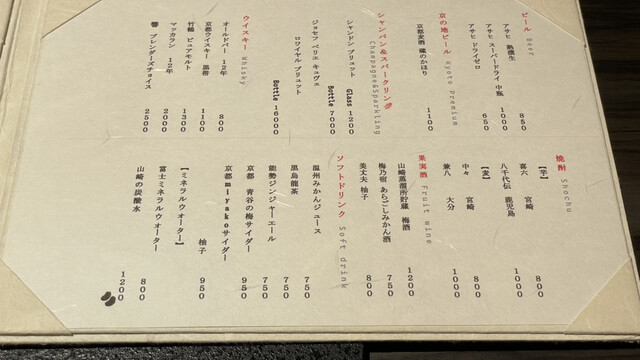 ビール Beer
アサヒ 熟撰生 850
アサヒ スーパードライ 中瓶 1000
アサヒ ドライゼロ 650
京の地ビール Kyoto Premium
京都麦酒 蔵のかほり 1100
シャンパン＆スパークリング Champagne&Sparkling
シャンドン ブリュット Glass 1200
Bottle 7000
ジョセフ ペリエ キュヴェ
ロワイヤル ブリュット
Bottle 16000
ウイスキー Whisky
オールドパー 12年 800
京都ウイスキー 黒帯 1100
竹鶴 ピュアモルト 1300
マッカラン 12年 2000
響 ブレンダーズチョイス 2500
焼酎 Shochu
【芋】
喜六 宮崎 800
八千代伝 鹿児島 1000
【麦】
中々 宮崎 800
兼八 大分 1000
果実酒 Fruit wine
山崎蒸溜所貯蔵 梅酒 1200
梅乃宿 あらごしみかん酒 750
美丈夫 柚子 800
ソフトドリンク Soft drink
温州みかんジュース 750
黒烏龍茶 750
能勢ジンジャーエール 750
京都 青谷の梅サイダー 950
京都miyakoサイダー 柚子 950
【ミネラルウォーター】
富士ミネラルウォーター 800
山崎の炭酸水 1200